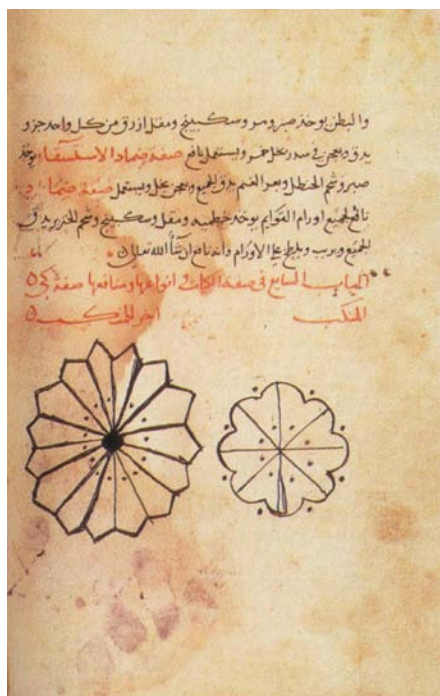 والبطن يوخذ صبر ومر وسكبينج ومقل ازرق من كل واحد جزو
يدق ويعجن في سدر بخل خمر ويستعمل نافع صفة ضماد الاستسقاء يوخذ
صبر وشحم الحنظل وبعر الغنم يدق الجميع ويعجن بخل ويستعمل صفة ضماد
نافع لجميع اورام القوايم يوخذ خطميه ومقل وسكبينج وشحم الخنزير يدق
الجميع ويلطخ على الاورام وانه نافع ان شاء الله تعالى
الباب السابع في صفة الكيات في انواعها ومنافعها صفة كي
المنكب اخر للمنكب